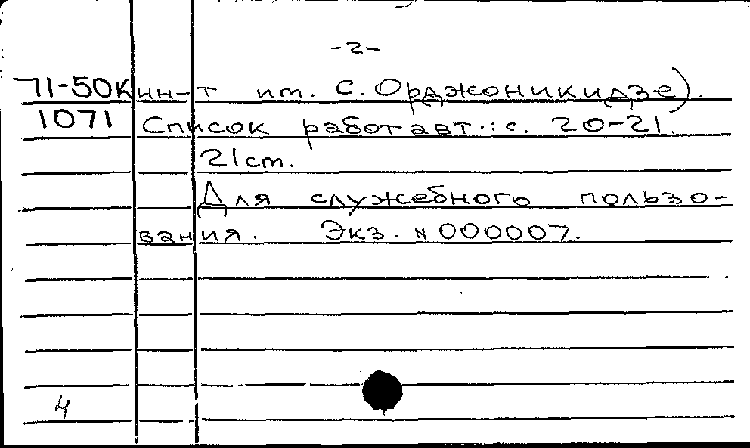 -2-
71-50к ин-т им. С. Орджоникидзе).
1071 Список работ авт.: с. 20-21.
21см.
Для служебного пользо-
вания. Экз. № 000007.
4